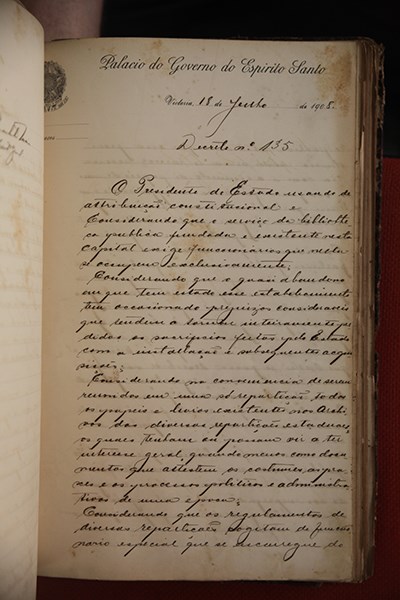 Palacio do Governo do Espirito Santo
Victoria, 18 de Julho de 1908.
Decreto nº 135
O Presidente do Estado usando da
attribuição constitucional e
Considerando que o serviço da bibliothe
ca publica fundada e existente nesta
capital exige funccionarios que nella
se occupem exclusivamente;
Considerando que o quasi abandono
em que tem estado esse estabelecimento
tem occasionado prejuizos consideraveis
que tendem a tornar inteiramente per
didos os sacrificios feitos pelo Estado
com a installação e subsequentes acqui
sições;
Considerando na conveniencia de serem
reunidos em uma só repartição todos
os papeis e livros existentes nos Archi
vos das diversas repartições estaduaes,
os quaes tenham ou possam vir a ter
interesse geral, quando menos como docu
mentos que attestem os costumes, as pra
xes e os processos politicos e administra
tivos de uma epoca;
Considerando que os regulamentos de
diversas repartições cogitam de funccio
nario especial que se encarregue do